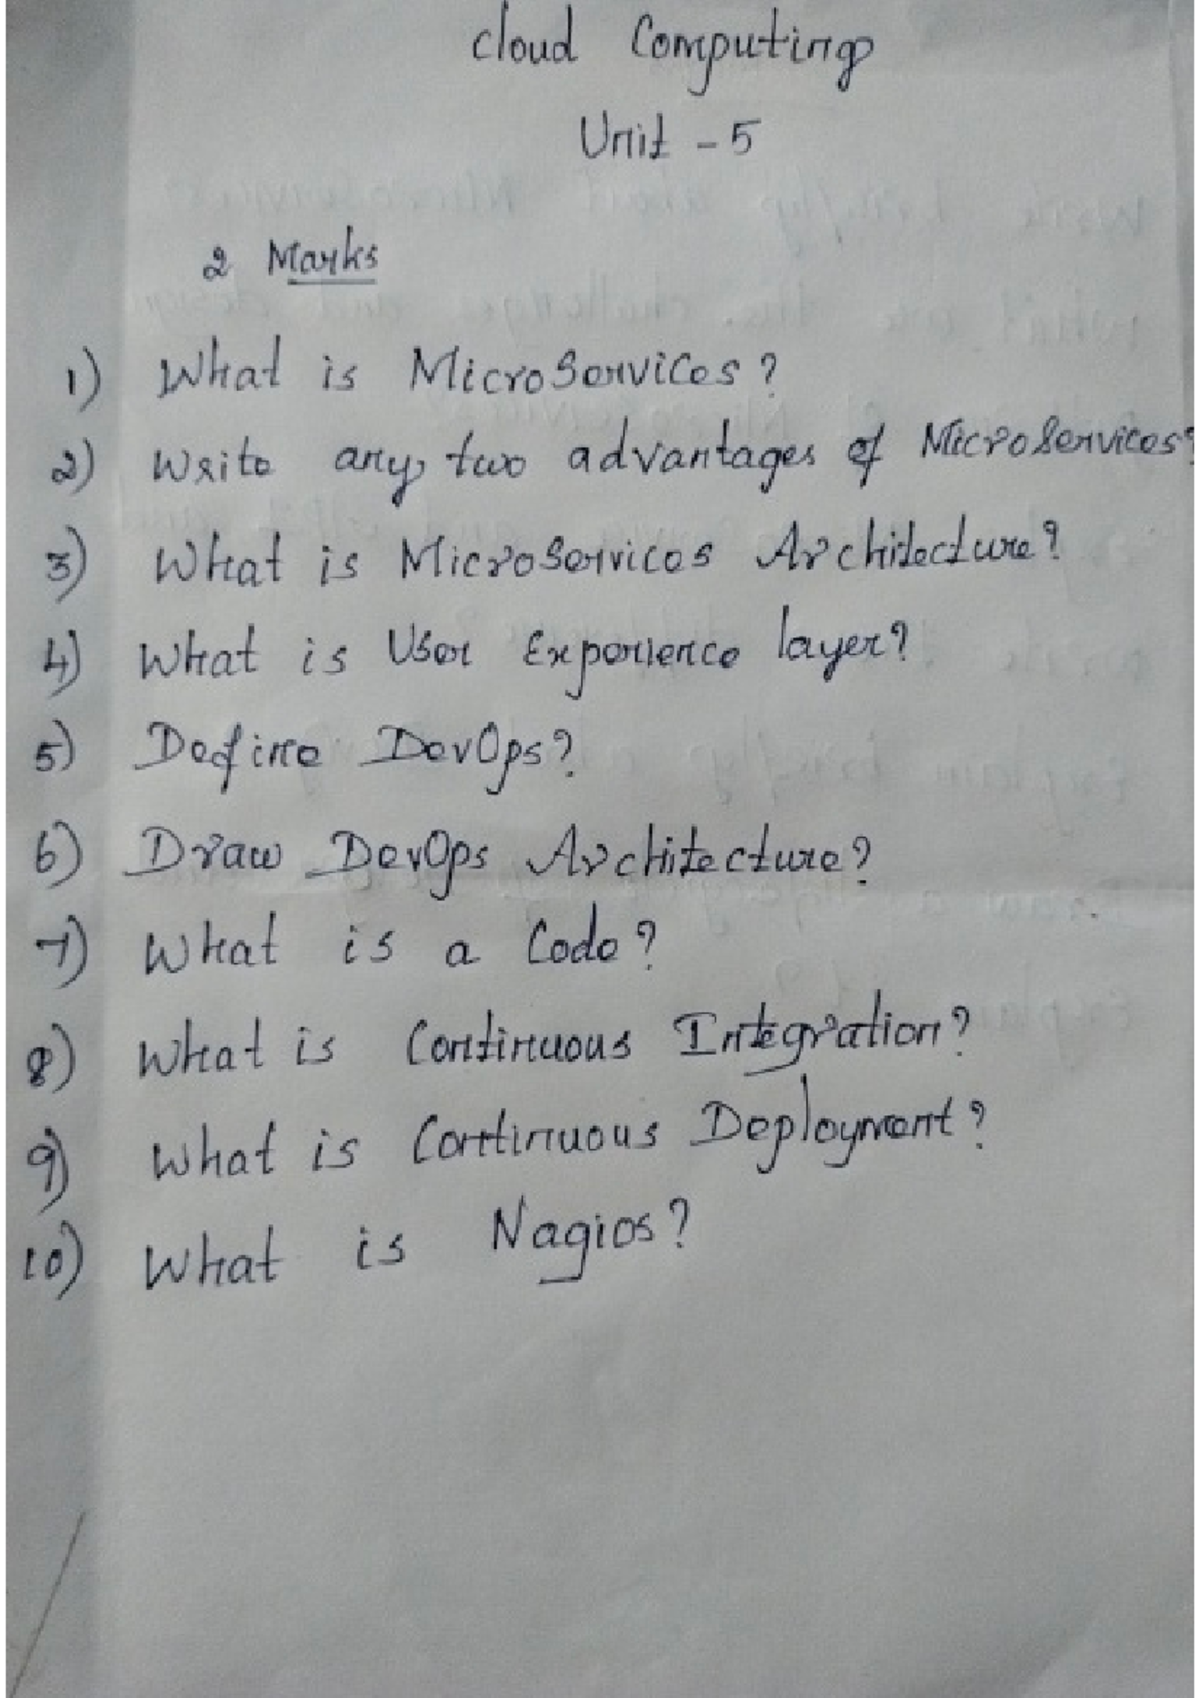 Cloud Computing
Unit - 5
2 Marks
1) What is Microservices?
2) Write any two advantages of Microservices?
3) What is Microservices Architecture?
4) What is User Experience layer?
5) Define DevOps?
6) Draw DevOps Architecture?
7) What is a Code?
8) What is Continuous Integration?
9) What is Continuous Deployment?
10) What is Nagios?